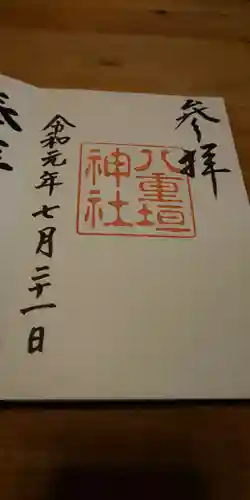 参拝
八重垣
神社
令和元年七月二十一日